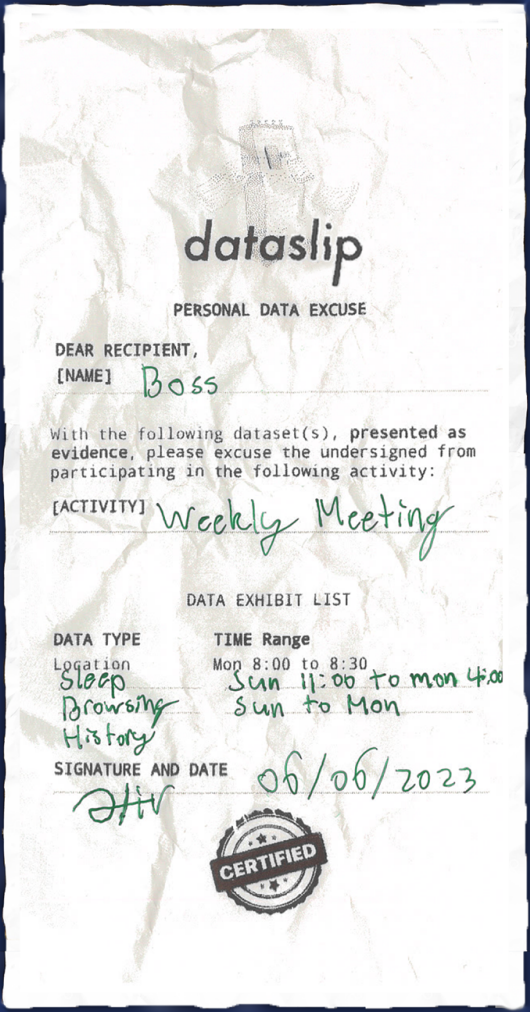 dataslip
PERSONAL DATA EXCUSE
DEAR RECIPIENT,
[NAME] Boss
With the following dataset(s), presented as
evidence, please excuse the undersigned from
participating in the following activity:
[ACTIVITY] Weekly Meeting
DATA EXHIBIT LIST
DATA TYPE TIME Range
Location Mon 8:00 to 8:30
Sleep Sun 11:00 to mon 4:00
Browsing Sun to Mon
History
SIGNATURE AND DATE 06/06/2023
CERTIFIED